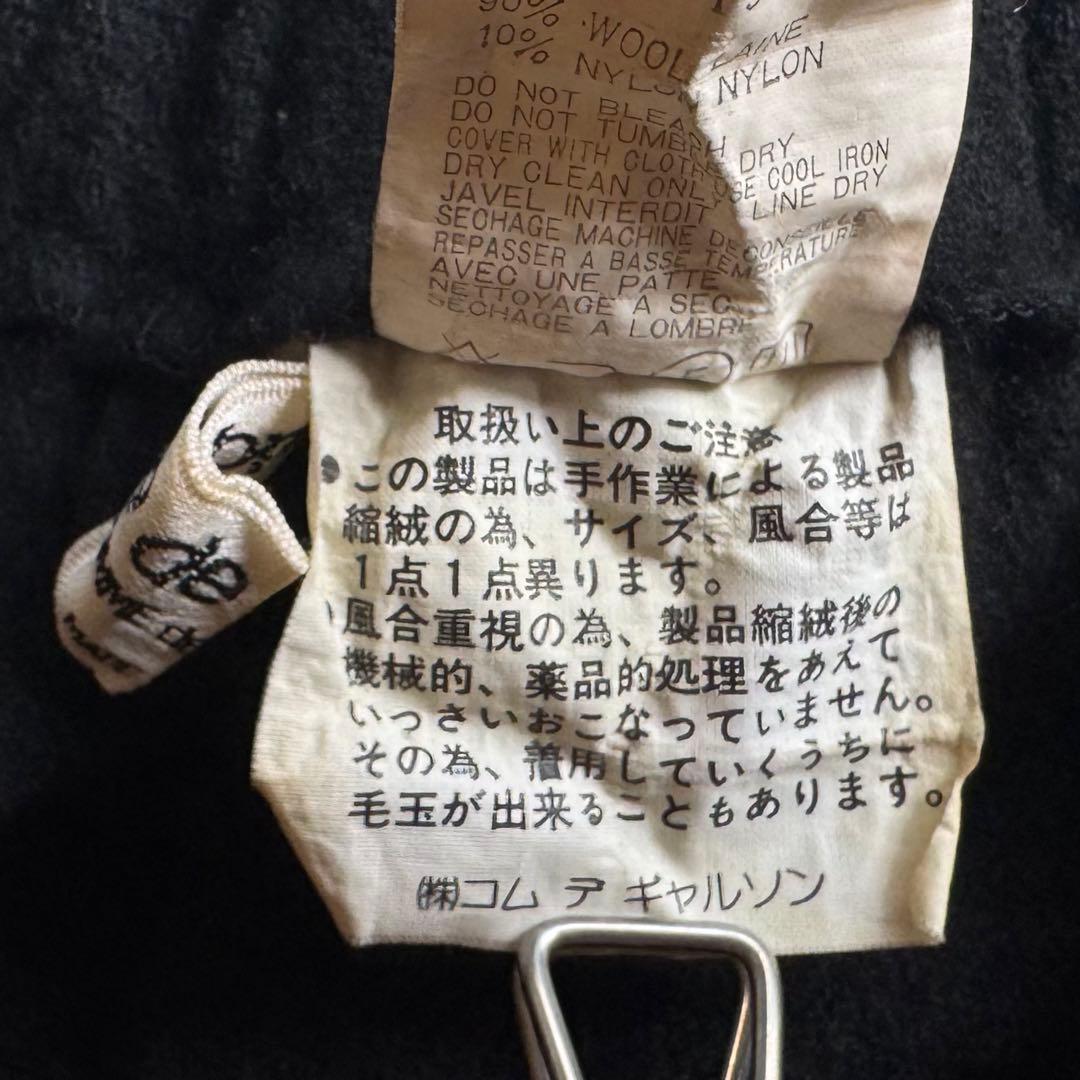 90% WOOL LAINE
10% NYLON NYLON
DO NOT BLEACH
DO NOT TUMB DRY
COVER WITH CLOTH USE COOL IRON
DRY CLEAN ONL LINE DRY
JAVEL INTERDIT
SECHAGE MACHINE DECONSEILLE
REPASSER A BASSE TEMPERATURE
AVEC UNE PATTE
NETTOYAGE A SEC
SECHAGE A LOMBRE
取扱い上のご注意
●この製品は手作業による製品
縮絨の為、サイズ、風合等は
1点1点異ります。
風合重視の為、製品縮絨後の
機械的、薬品的処理をあえて
いっさいおこなっていません。
その為、着用していくうちに
毛玉が出来ることもあります。
㈱コム デ ギャルソン